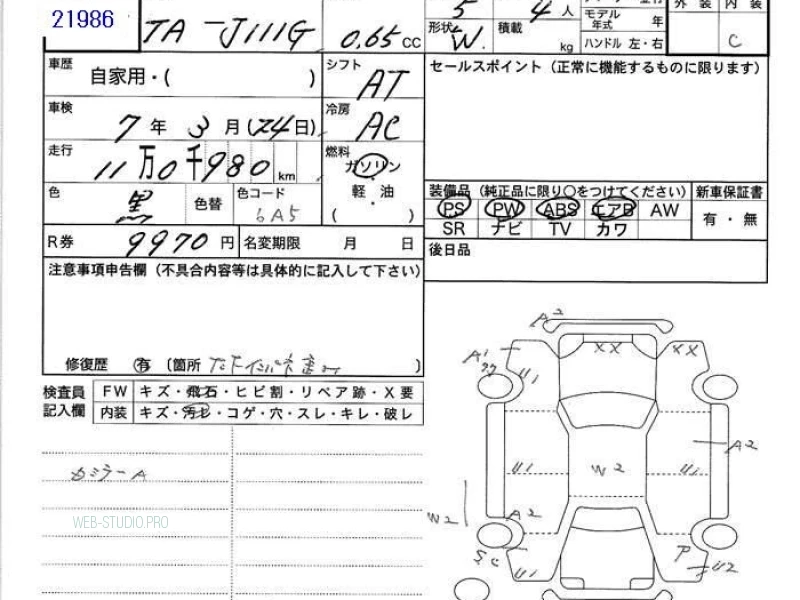 21986
TA-J111G
0.65 CC
5
4 人
モデル年式 年
外装 内装
形状 W.
積載 kg
ハンドル 左・右
C
車歴 自家用・( )
シフト AT
セールスポイント (正常に機能するものに限ります)
車検 7年 3月 (24日)
冷房 AC
走行 11万0千980 km
燃料 ガソリン
軽・油
( )
色 黒
色替
色コード 6A5
装備品 (純正品に限り○をつけてください)
新車保証書
PS PW ABS エアB AW
有・無
SR ナビ TV カワ
R券 9970 円
名変期限 月 日
後日品
注意事項申告欄 (不具合内容等は具体的に記入して下さい)
修復歴 有 〔箇所 )
検査員記入欄
FW キズ・飛石・ヒビ割・リペア跡・X要
内装 キズ・汚レ・コゲ・穴・スレ・キレ・破レ
カミラーA
WEB-STUDIO.PRO
A2
A1
XX
XX
U1
A2
U1
W2
U1
W2
A2
P
U2
U1